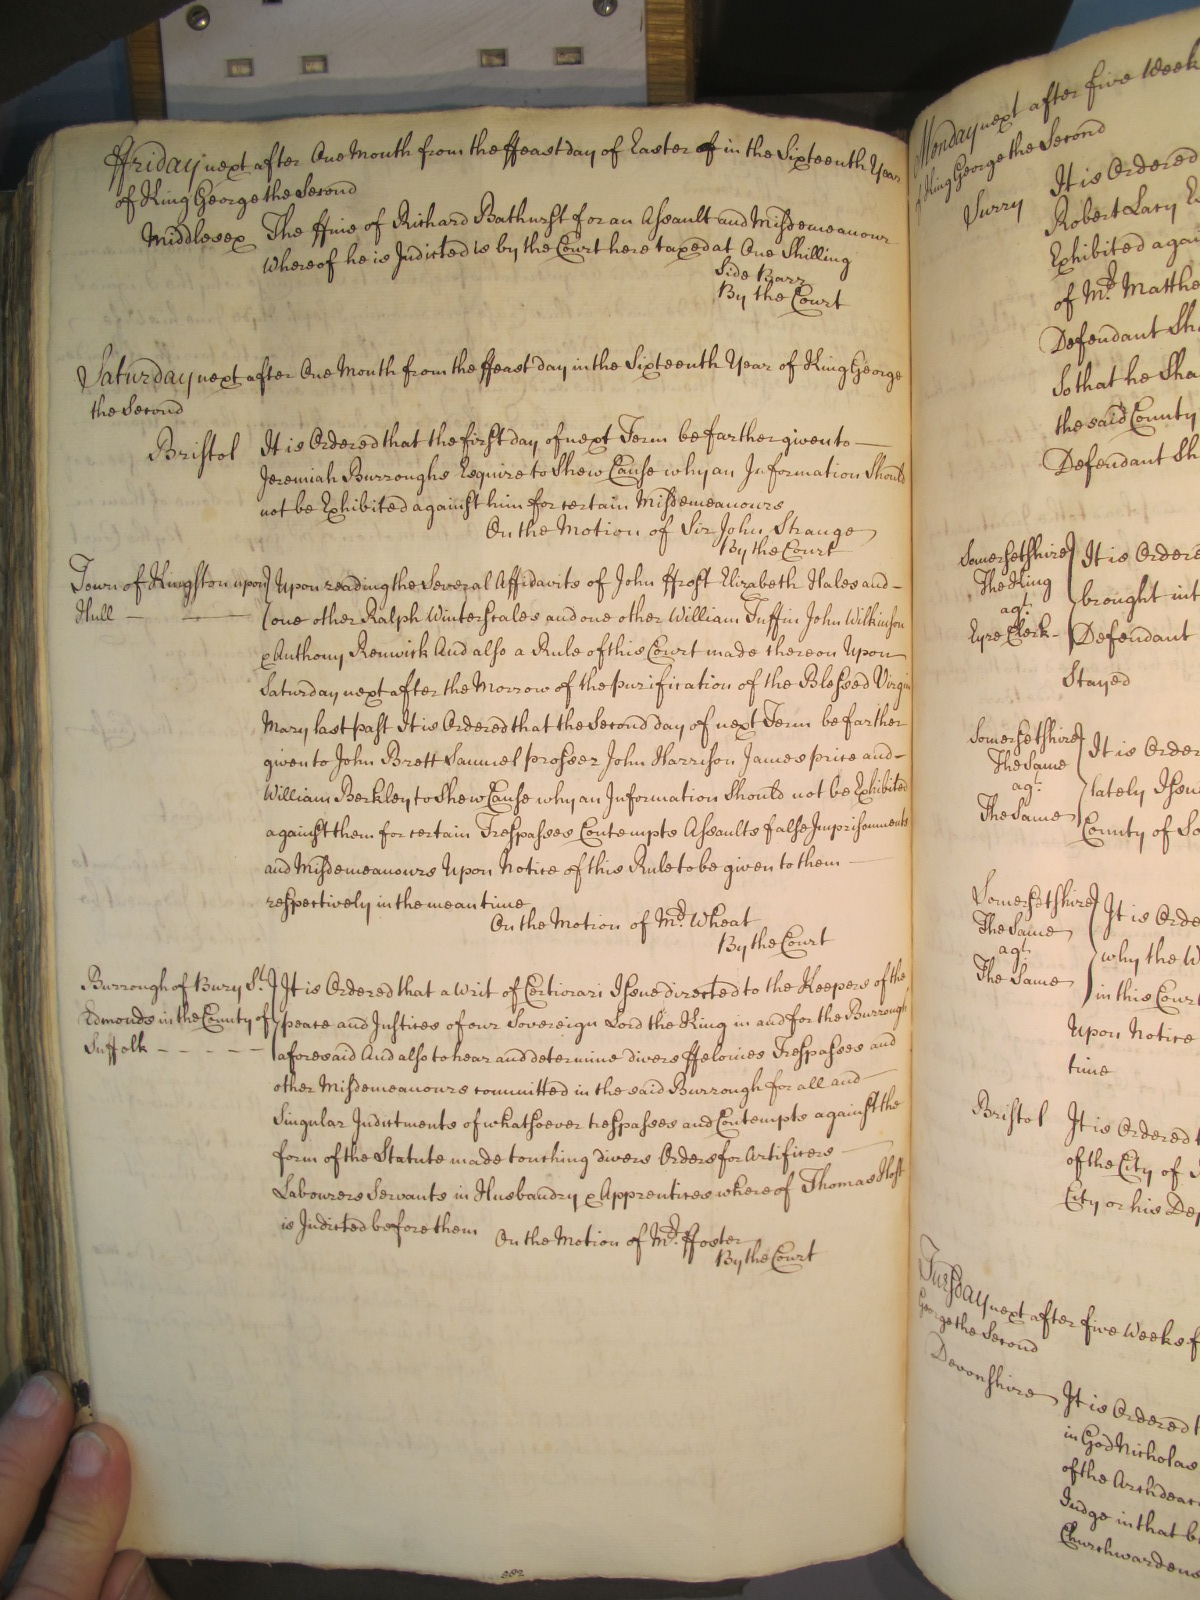 Friday next after One Month from the ffeast day of Easter in the Sixteenth Year
of King George the Second
Middlesex The ffine of Richard Bathurst for an Assault and Misdemeanour
whereof he is Indicted is by the Court here taxed at One Shilling
Side Barr
By the Court
Saturday next after One Month from the ffeast day in the Sixteenth Year of King George
the Second
Bristol It is Ordered that the first day of next Term be farther given to
Jeremiah Burroughs Esquire to Shew Cause why an Information Should
not be Exhibited against him for certain Misdemeanours
On the Motion of Sir John Strange
By the Court
Town of Kingston upon Upon reading the Several Affidavits of John ffrost Elizabeth Hales and
Hull one other Ralph Winterscales and one other William Tuffin John Wilkinson
& Anthony Renwick And also a Rule of this Court made thereon Upon
Saturday next after the Morrow of the purification of the Blessed Virgin
Mary last past It is Ordered that the Second day of next Term be farther
given to John Brett Samuel prosser John Harrison James price and
William Berkley to Shew Cause why an Information Should not be Exhibited
against them for certain Trespasses Contempts Assaults false Imprisonments
and Misdemeanours Upon Notice of this Rule to be given to them
respectively in the mean time
On the Motion of Mr. Wheat
By the Court
Burrough of Bury St. It is Ordered that a Writ of Certiorari Issue directed to the Keepers of the
Edmonds in the County of peace and Justices of our Sovereign Lord the King in and for the Burrough
Suffolk aforesaid And also to hear and determine divers ffelonies Trespasses and
other Misdemeanours committed in the said Burrough for all and
Singular Indictments of whatsoever trespasses and Contempts against the
form of the Statute made touching divers Orders for Artificers
Labourers Servants in Husbandry & Apprentices whereof Thomas
is Indicted before them On the Motion of Mr. ffoster
By the Court
Monday next after five Week
of King George the Second
Surry It is Ordered
Robert Lacy
Exhibited agai
of Mr. Matthe
Defendant Sha
So that he Sha
the said County
Defendant Sh
Somersetshire It is Ordere
The King brought int
agt.
Eyre Clerk Defendant
Stayed
Somersetshire It is Order
The Same lately Issu
agt.
The Same County of So
Somersetshire It is Orde
The Same why the W
agt.
The Same in this Court
Upon Notice
time
Bristol It is Ordered
of the City of
City or his Dep
Tuesday next after five Weeks f
George the Second
Devonshire It is Ordered t
in God Nicholas
of the Archdeac
Judge in that b
Churchwardens